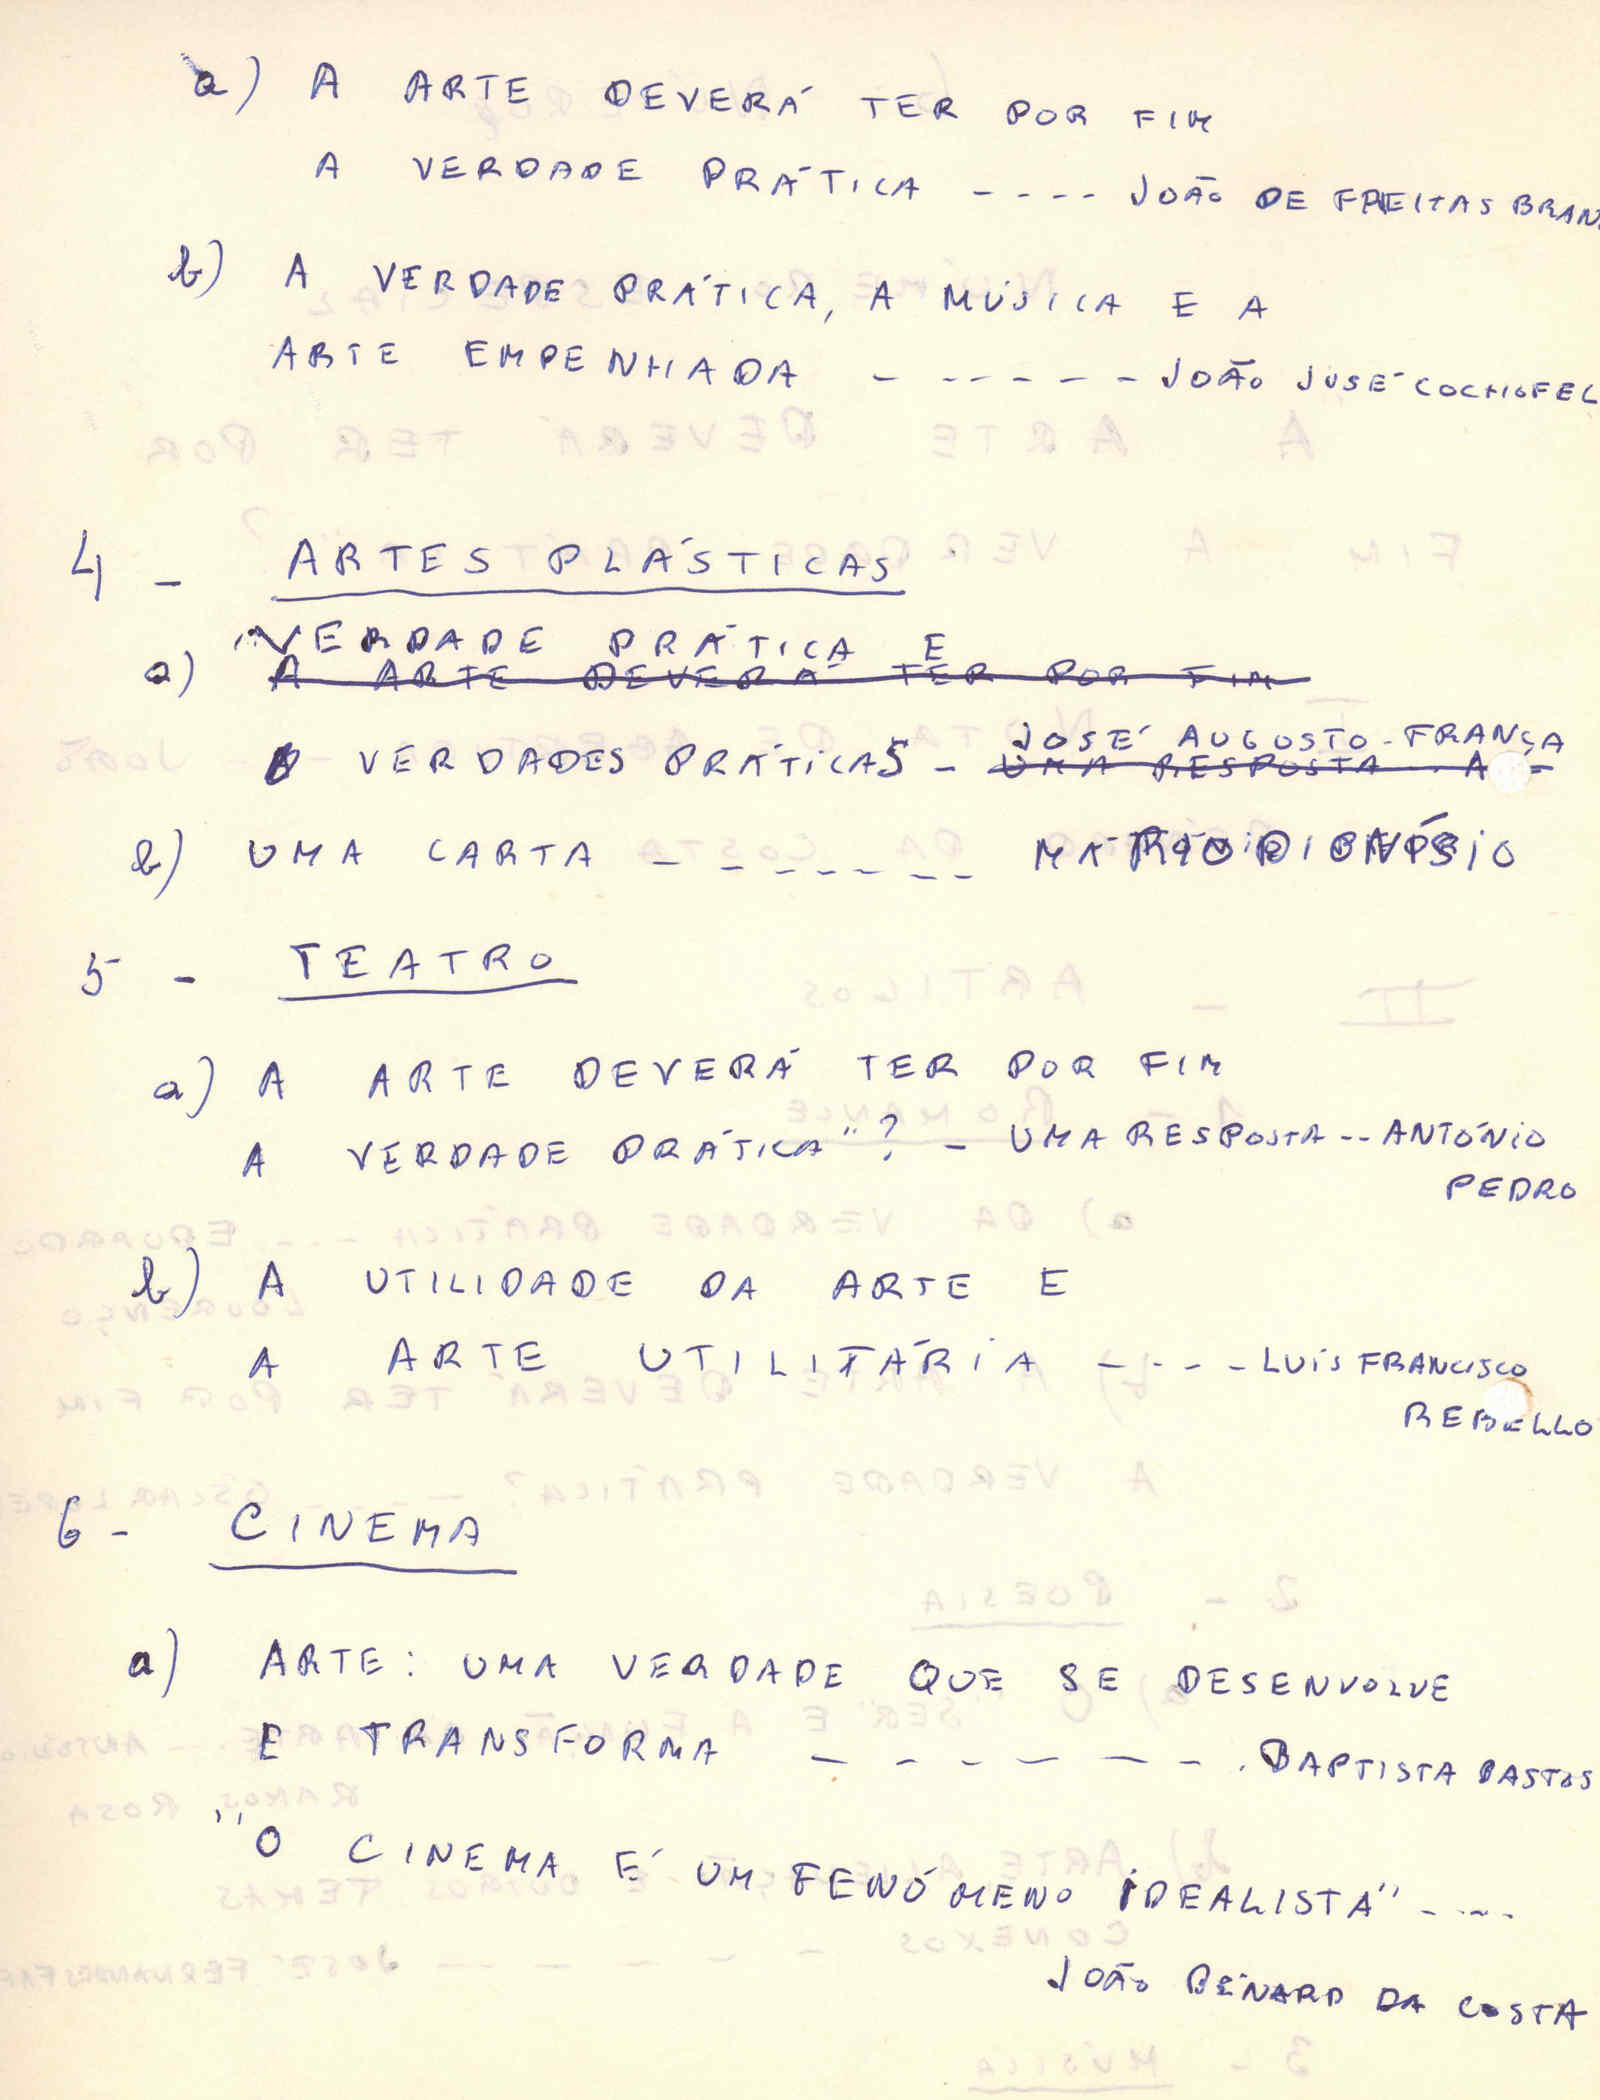 a) A ARTE DEVERÁ TER POR FIM
A VERDADE PRÁTICA ---- JOÃO DE FREITAS BRAN
b) A VERDADE PRÁTICA, A MÚSICA E A
ARTE EMPENHADA ------ JOÃO JOSÉ COCHOFEL
4 - ARTES PLÁSTICAS
"VERDADE PRÁTICA E
a) A ARTE DEVERÁ TER POR FIM
JOSÉ AUGUSTO-FRANÇA
VERDADES PRÁTICAS - UMA RESPOSTA
b) UMA CARTA ------- MÁRIO DIONÍSIO
5 - TEATRO
a) A ARTE DEVERÁ TER POR FIM
A VERDADE PRÁTICA"? - UMA RESPOSTA -- ANTÓNIO
PEDRO
b) A UTILIDADE DA ARTE E
A ARTE UTILITÁRIA ---- LUIS FRANCISCO
REBELLO
6 - CINEMA
a) ARTE: UMA VERDADE QUE SE DESENVOLVE
E TRANSFORMA ------- BAPTISTA BASTOS
"O CINEMA É UM FENÓMENO IDEALISTA" ----
JOÃO BÉNARD DA COSTA